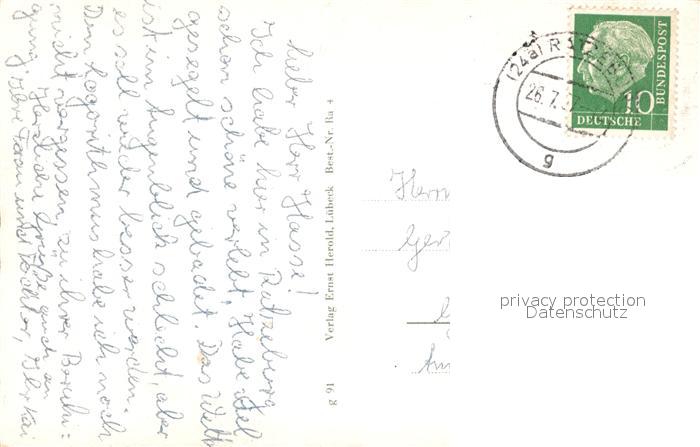 Lieber Herr Hasse!
Ich habe hier in Ratzeburg
schon schöne verlebt, Habe viel
gesegelt und gebadet. Das Wett
ist im Augenblick schlecht, aber
es soll wieder besser werden.
Den Logarithmus habe ich noch
nicht vergessen, zu ihrer Beruhi=
gung, Herzliche Grüße auch an
Ihre Frau und Tochter, Ihr Kai
g 61 Verlag Ernst Herold, Lübeck Best.-Nr. Ra 4
(24a) RATZEB
26.7.57
g
10
DEUTSCHE
BUNDESPOST
Herrn
Ger
privacy protection
Datenschutz